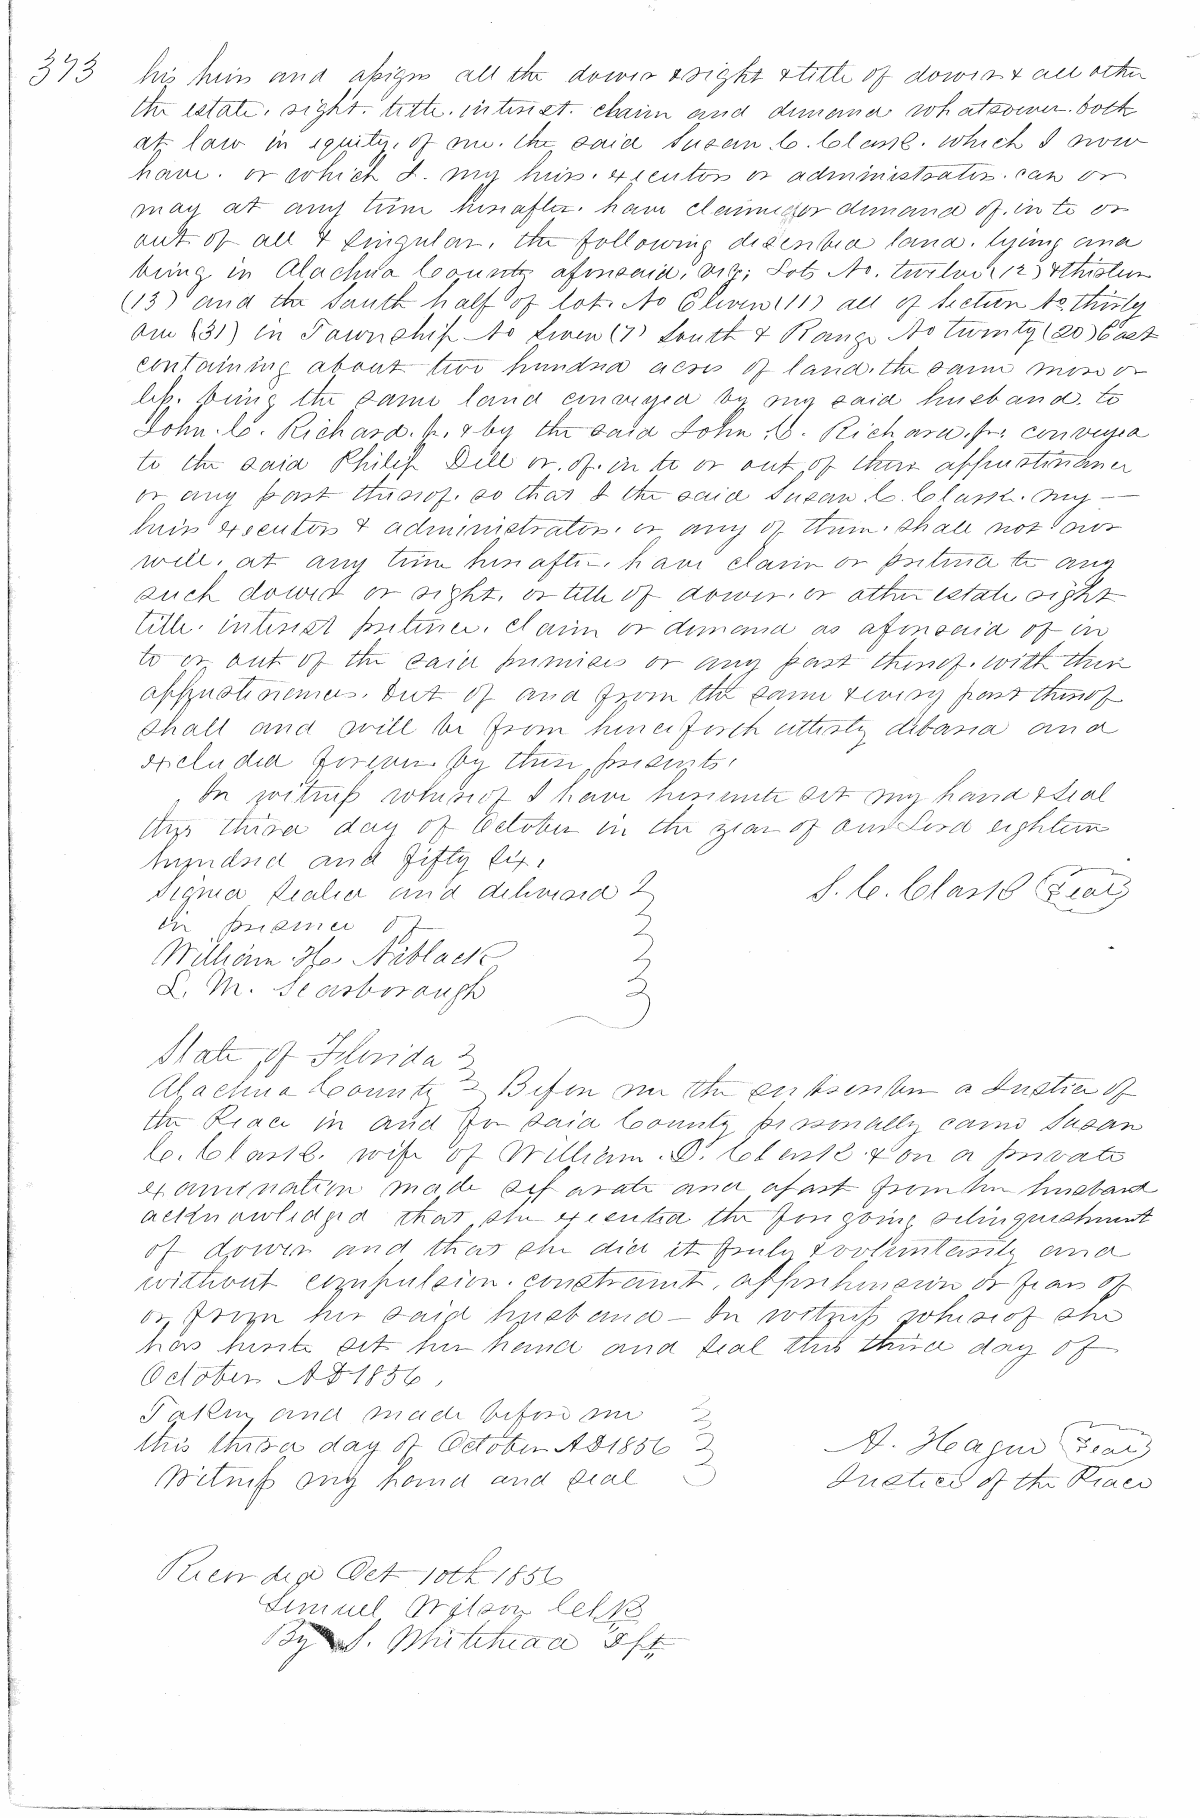 373
his heirs and assigns all the dower & right & title of dower & all other
the estate. right. title. interest. claim and demand whatsoever. both
at law in equity, of me. the said Susan. C. Clark. which I now
have. or which I. my heirs. executors or administrators. can or
may at any time hereafter. have claim or demand of. in to or
out of all & singular. the following described land. lying and
being in Alachua County aforesaid, viz; Lots No. twelve (12) & thirteen
(13) and the South half of lot. No Eleven (11) all of Section No. thirty
one (31) in Township No Seven (7) South & Range No twenty (20) East
containing about two hundred acres of land. the same more or
less. being the same land conveyed by my said husband. to
John. C. Richard. Jr. & by the said John. C. Richard. Jr. conveyed
to the said Philip Dell or. of. in to or out of their appurtenances
or any part thereof. so that I the said Susan C. Clark. my —
heirs executors & administrators. or any of them. shall not nor
will. at any time hereafter. have claim or pretend to any
such dower or right. or title of dower. or other estate right
title. interest pretence. claim or demand as aforesaid of in
to or out of the said premises or any part thereof. with their
appurtenances. but of and from the same & every part thereof
shall and will be from henceforth utterly debared and
excluded forever by these presents.
In witness whereof I have hereunto set my hand & seal
this third day of October in the year of our Lord eighteen
hundred and fifty six.
Signed Sealed and delivered
S. C. Clark (Seal)
in presence of
William H. Niblack
L. M. Scarborough
State of Florida
Alachua County Before me the subscriber a Justice of
the Peace in and for said County personally came Susan
C. Clark. wife of William. D. Clark & on a private
examination made separate and apart from her husband
acknowledged that she executed the foregoing relinquishment
of dower and that she did it freely & voluntarily and
without compulsion. constraint. apprehension or fear of
or from her said husband — In witness whereof she
has hereto set her hand and seal this third day of
October AD 1856.
Taken and made before me
this third day of October AD 1856
A. Hague (Seal)
Witness my hand and seal
Justice of the Peace
Recorded Oct 10th 1856
Lemuel Wilson Clk
By S. Whitehead Dpt.